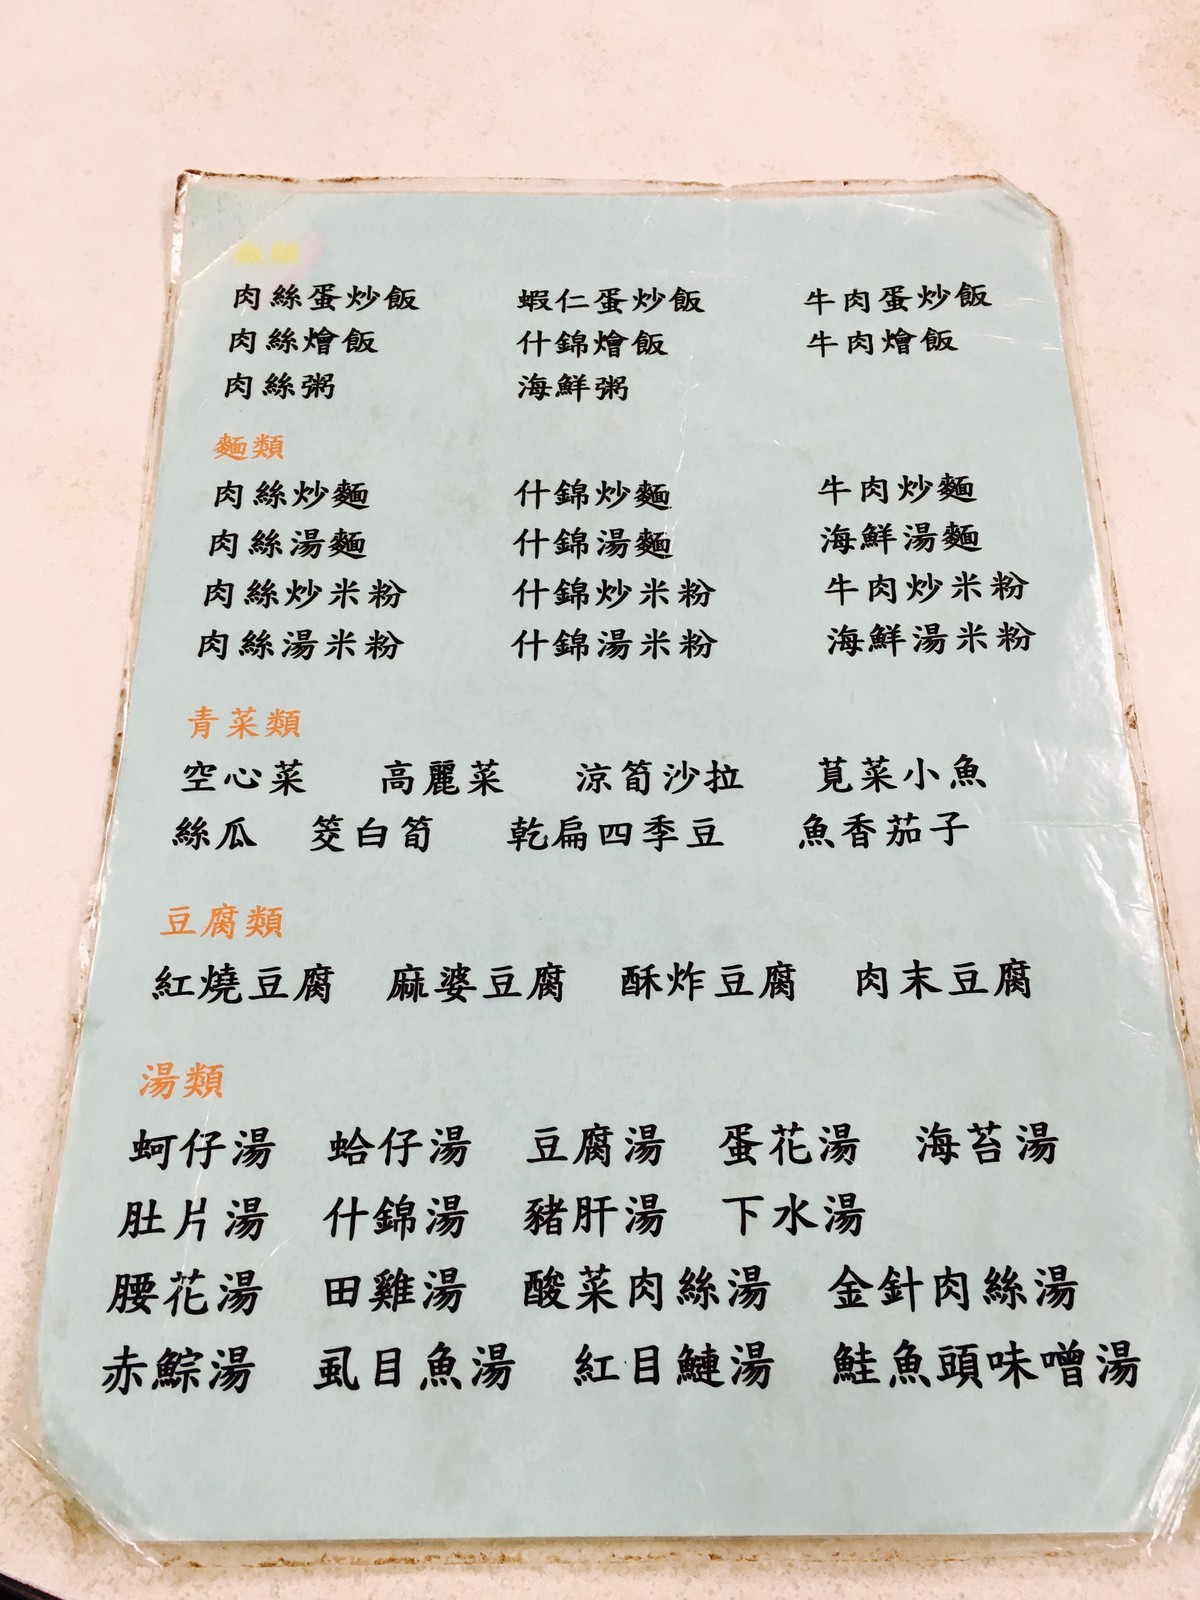 肉絲蛋炒飯 蝦仁蛋炒飯 牛肉蛋炒飯
肉絲燴飯 什錦燴飯 牛肉燴飯
肉絲粥 海鮮粥
麵類
肉絲炒麵 什錦炒麵 牛肉炒麵
肉絲湯麵 什錦湯麵 海鮮湯麵
肉絲炒米粉 什錦炒米粉 牛肉炒米粉
肉絲湯米粉 什錦湯米粉 海鮮湯米粉
青菜類
空心菜 高麗菜 涼筍沙拉 莧菜小魚
絲瓜 筊白筍 乾扁四季豆 魚香茄子
豆腐類
紅燒豆腐 麻婆豆腐 酥炸豆腐 肉末豆腐
湯類
蚵仔湯 蛤仔湯 豆腐湯 蛋花湯 海苔湯
肚片湯 什錦湯 豬肝湯 下水湯
腰花湯 田雞湯 酸菜肉絲湯 金針肉絲湯
赤鯮湯 虱目魚湯 紅目鰱湯 鮭魚頭味噌湯